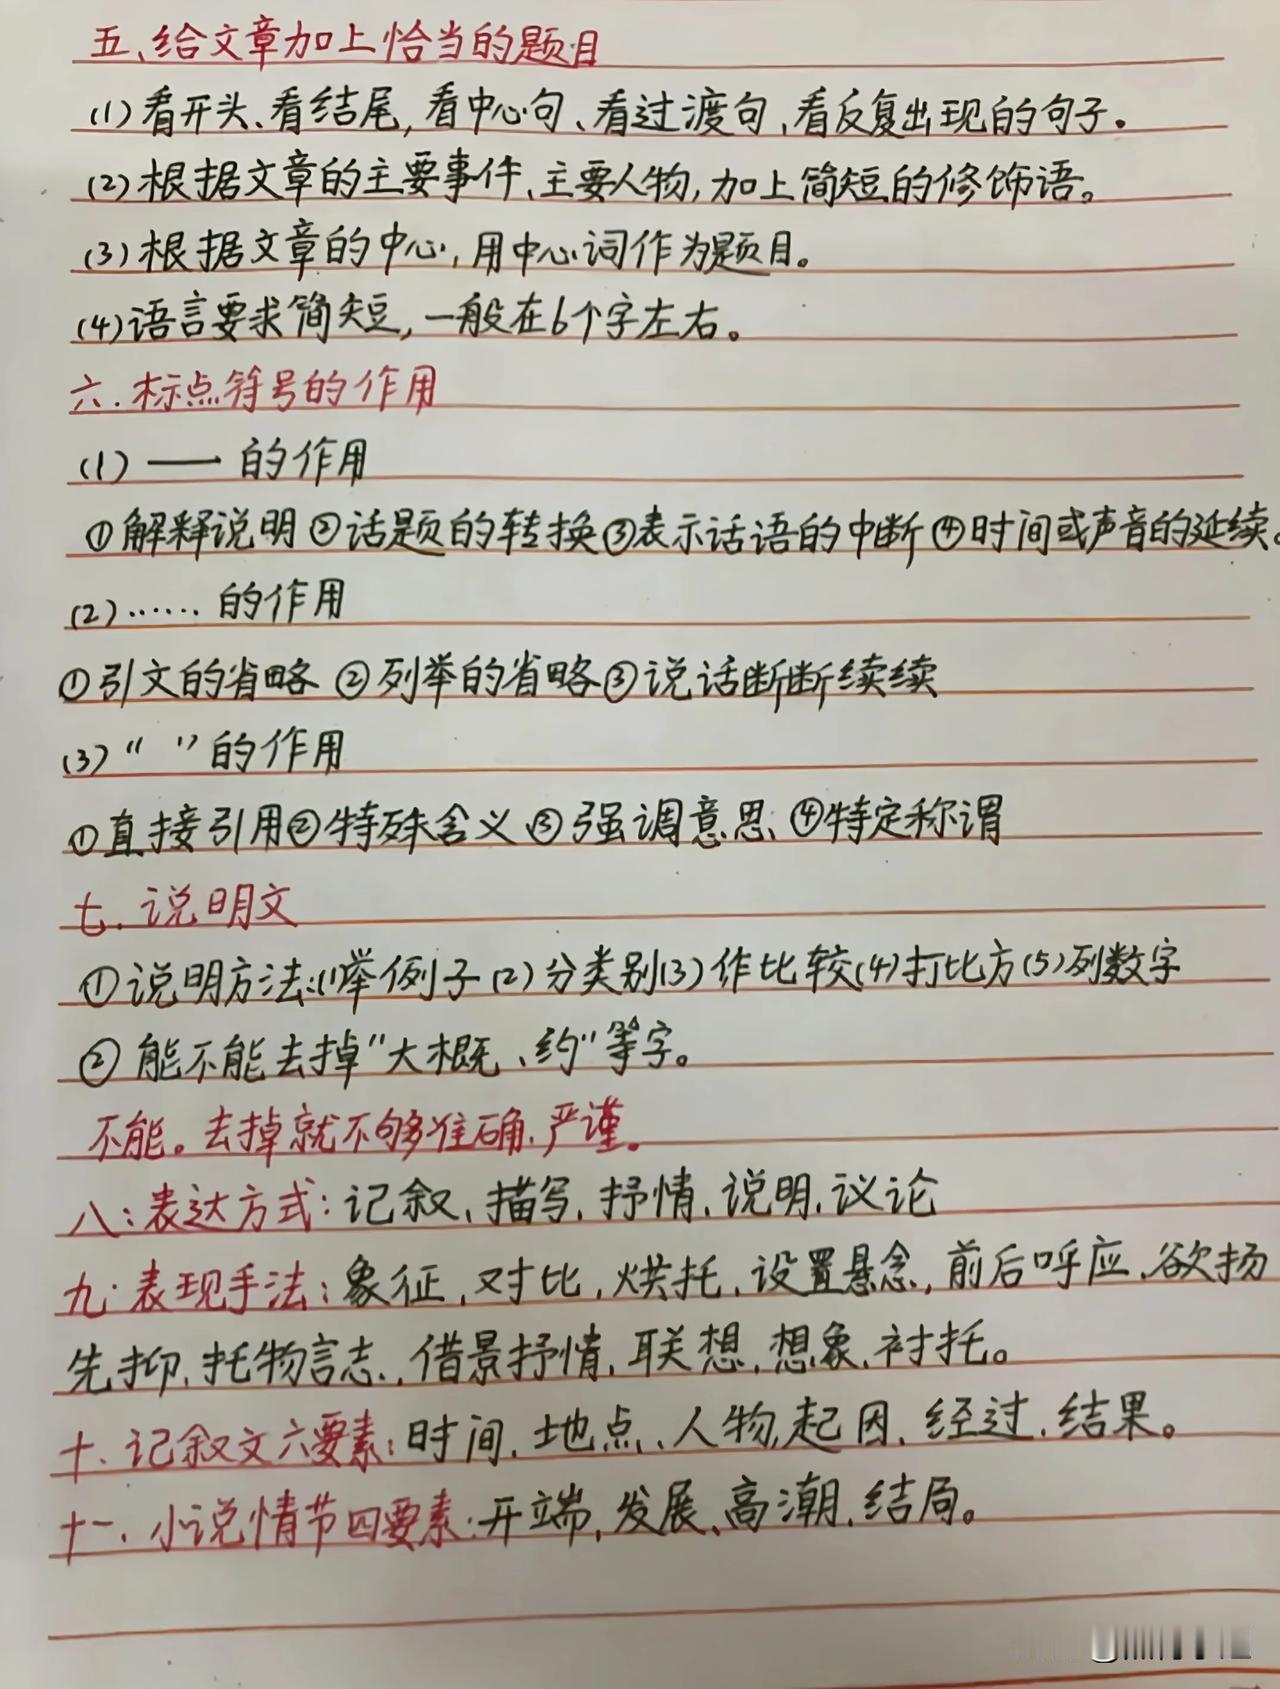 五、给文章加上恰当的题目
(1)看开头、看结尾,看中心句、看过渡句,看反复出现的句子。
(2)根据文章的主要事件、主要人物,加上简短的修饰语。
(3)根据文章的中心,用中心词作为题目。
(4)语言要求简短,一般在6个字左右。
六.标点符号的作用
(1)——的作用
①解释说明②话题的转换③表示话语的中断④时间或声音的延续。
(2)……的作用
①引文的省略②列举的省略③说话断断续续
(3)“ ”的作用
①直接引用②特殊含义③强调意思④特定称谓
七.说明文
①说明方法:(1)举例子(2)分类别(3)作比较(4)打比方(5)列数字
②能不能去掉“大概、约”等字。
不能。去掉就不够准确.严谨。
八:表达方式:记叙、描写.抒情.说明.议论
九.表现手法:象征,对比,烘托,设置悬念,前后呼应、欲扬
先抑、托物言志、借景抒情,联想,想象、衬托。
十.记叙文六要素:时间、地点、人物,起因、经过.结果。
十一.小说情节四要素:开端,发展、高潮.结局。